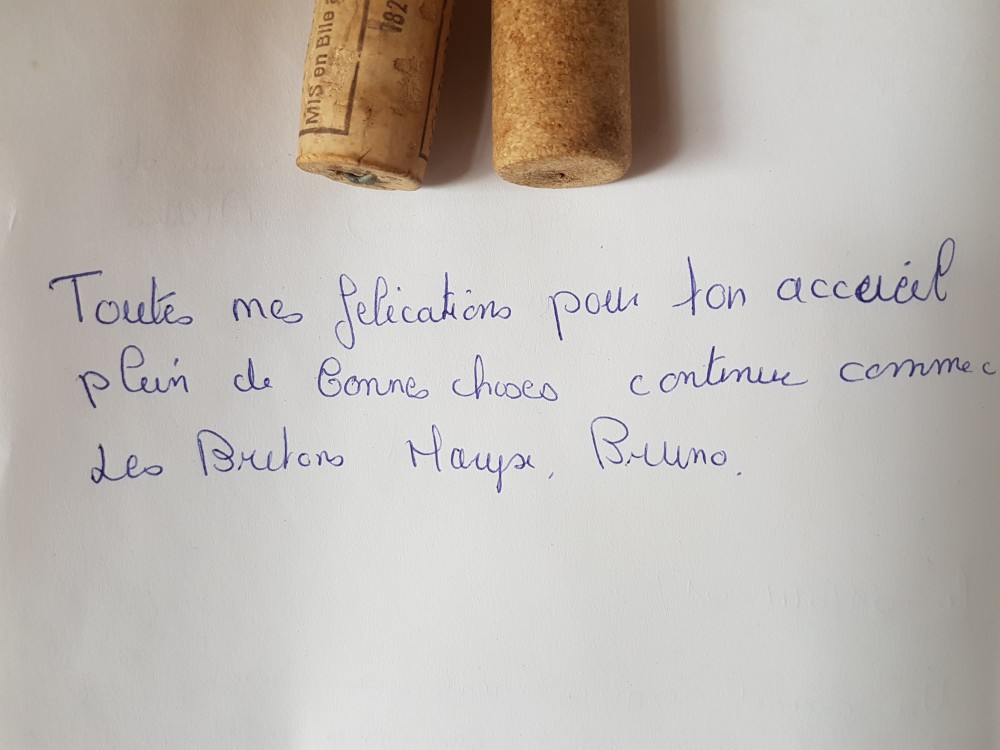 MIS en Blle
182
Toutes mes felications pour ton accueil
plein de bonnes choses continue comme c
Les Bretons Maryse, Bruno.